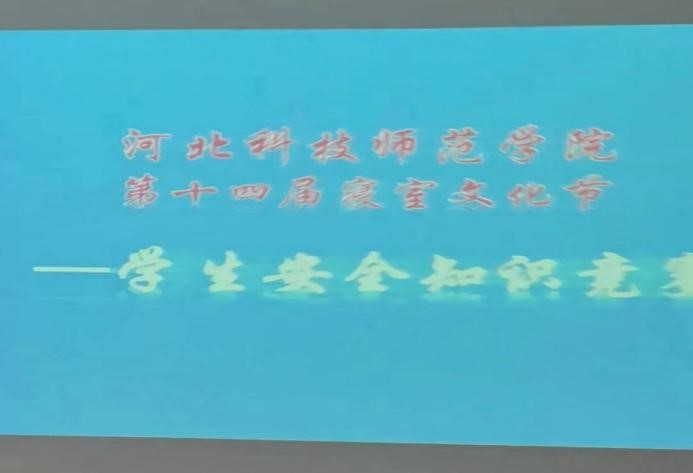 河北科技师范学院
第十四届寝室文化节
——学生安全知识竞赛